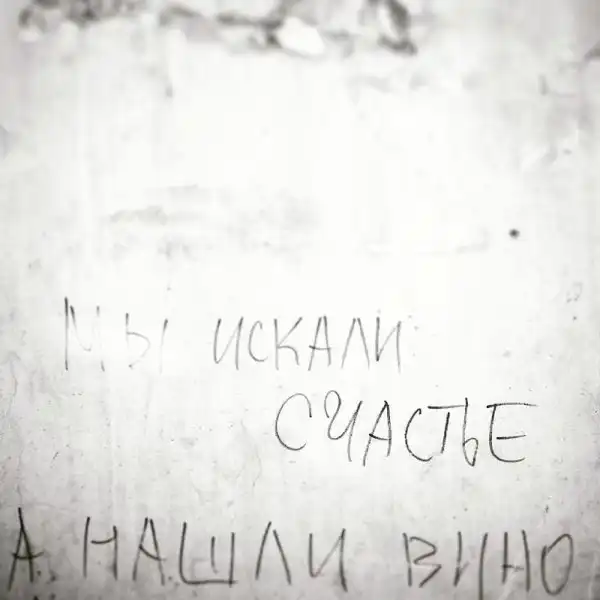 МЫ ИСКАЛИ
СЧАСТЬЕ
А НАШЛИ ВИНО